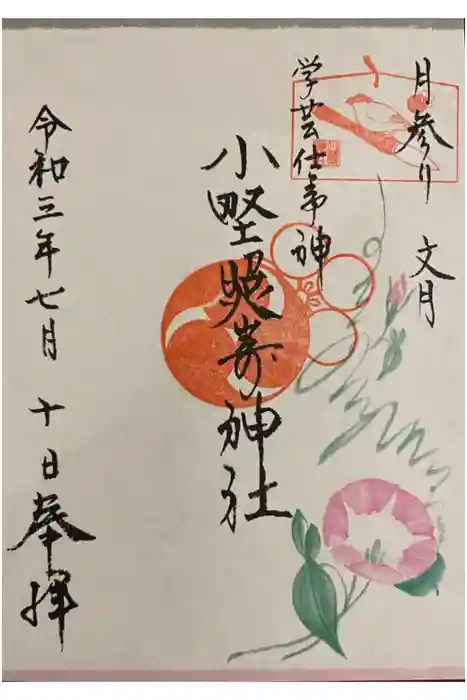 月参り 文月
学芸仕事神
小野照崎神社
令和三年七月 十日奉拝